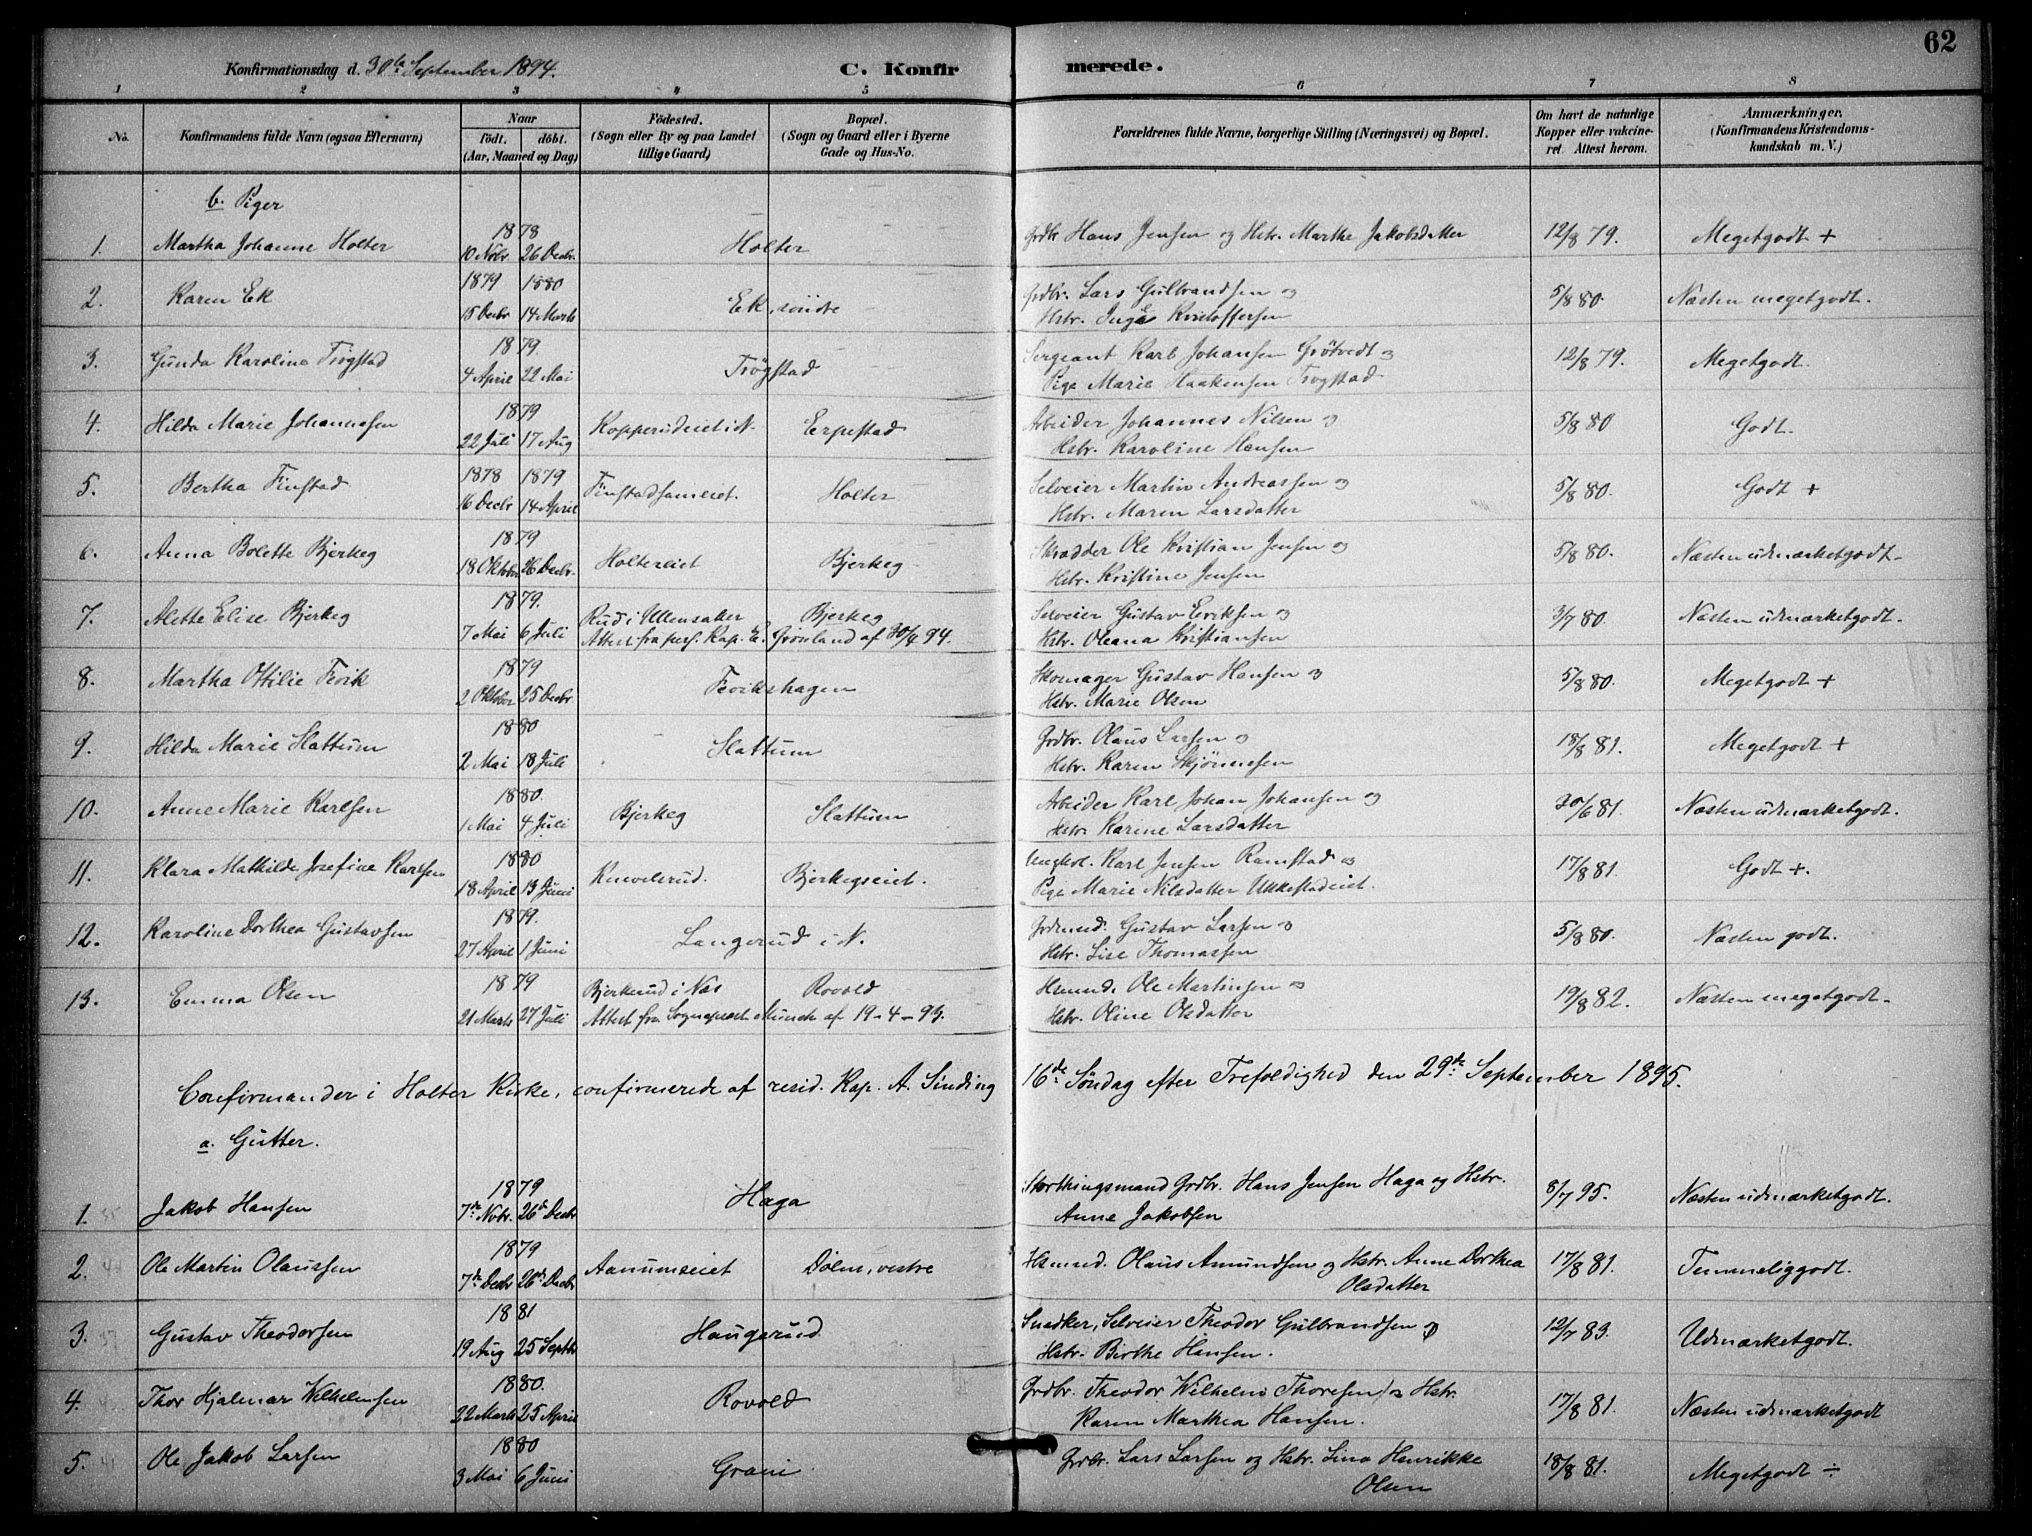 62
Konfirmationsdag d. 30te September 1894.
C. Konfirmerede.
1 2 3 4 5 6 7 8
No.
Konfirmandens fulde Navn (ogsaa Efternavn)
Naar
født. døbt.
(Aar, Maaned og Dag)
Fødested.
(Sogn eller By og paa Landet
tillige Gaard)
Bopæl.
(Sogn og Gaard eller i Byerne
Gade og Hus-No.
Forældrenes fulde Navne, borgerlige Stilling (Næringsvei) og Bopæl.
Om havt de naturlige
Kopper eller vakcine-
ret. Attest herom.
Anmærkninger.
(Konfirmandens Kristendoms-
kundskab m. V.)
b. Piger
1. Martha Johanne Holter 1878 10 Novbr 26 Decbr. Holter Grdbr Hans Jensen og Hstr. Marthe Jakobsdatter 12/8 79. Megetgodt +
2. Karen Ek 1879 1880 15 Decbr 14 Marts Ek, søndre Grdbr. Lars Gulbrandsen og
Hstr. Inga Kristoffersen 5/8 80. Næsten megetgodt.
3. Gunda Karolina Trøgstad 1879. 4 April 22 Mai Trøgstad Sergeant Karl Johansen Grøtvedt og
Pige Marie Haakensen Trøgstad 12/8 79. Megetgodt.
4. Hilda Marie Johannesen 1879 22 Juli 17 Aug Kopperudeiet i N. Erpestad Arbeider Johannes Nilsen og
Hstr. Karoline Hansen 5/8 80 Godt.
5. Bertha Finstad 1878 1879 16 Decbr 14 April Finstadsameiet. Holter Selveier Martin Andreassen og
Hstr. Maren Larsdatter 5/8 80. Godt +
6. Anna Bolette Bjerkeg 1879 18 Oktober 26 Decbr. Holtereiet Bjerkeg Skrædder Ole Kristian Jensen og
Hstr. Kristine Jensen 5/8 80. Næsten udmærketgodt.
7. Alette Elise Bjerkeg 1879. 7 Mai 6 Juli Rud i Ullensaker Bjerkeg
Attest fra pers. Kap. E. Grønland af 30/4 94. Selveier Gustav Eriksen og
Hstr. Oleana Kristiansen 3/7 80 Næsten udmærketgodt.
8. Martha Ottilie Fevik 1879 2 Oktober 25 Decbr. Fevikshagen Skomager Gustav Hansen og
Hstr. Marie Olsen 5/8 80. Megetgodt +
9. Hilda Marie Slattum 1880 2 Mai 18 Juli Slattum Grdbr. Olaus Larsen og
Hstr. Karen Skjønnesen 18/8 81. Megetgodt +
10. Anne Marie Karlsen 1880. 1 Mai 4 Juli Bjerkeg Slattum Arbeider Karl Johan Johansen og
Hstr. Karine Larsdatter 30/6 81. Næsten udmærketgodt.
11. Klara Mathilde Josefine Karlsen 1880 18 April 13 Juni Bjerkegseiet. Ungkol. Karl Jensen Ramstad og
Pige Marie Nilsdatter Ukkestadeiet. 17/8 81. Godt +.
12. Karoline Dorthea Gustavsen 1879. 27 April 1 Juni Langerud i N. Grdmd. Gustav Larsen og
Hstr. Lise Thomassen 5/8 80. Næsten godt.
13. Emma Olsen 1879 21 Marts 27 Juli Bjerkerud i Næs Rovold
Attest fra Sognepræst Munch af 19-4-93. Hsmnd. Ole Martinsen og
Hstr. Oline Olsdatter 19/8 82. Næsten megetgodt.
Confirmander i Holter Kirke, confirmerede af resid. Kap. A. Sinding 16de Søndag efter Trefoldighed den 29de September 1895.
a. Gutter.
1. Jakob Hansen 1879 7de Novbr. 26de Decbr Haga Storthingsmand Grdbr. Hans Jensen Haga og Hstr.
Anne Jakobsen 8/7 95. Næsten udmærketgodt.
2. Ole Martin Olaussen 1879 7de Decbr 26de Decbr Aanumseiet Dølen, vestre Hsmnd. Olaus Amundsen og Hstr. Anne Dorthea
Olsdatter 17/8 81. Temmeliggodt.
3. Gustav Theodorsen 1881 19 Aug 25 Septbr Haugerud Snedker, Selveier Theodor Gulbrandsen og
Hstr. Birthe Hansen. 12/7 83. Udmærketgodt.
4. Thor Hjalmar Wilhelmsen 1880. 22 Marts 25 April Rovold Grdbr. Theodor Wilhelm Thoresen og Hstr.
Karen Marthea Hansen. 17/8 81. Næsten udmærketgodt
5. Ole Jakob Larsen 1880 3 Mai 6 Juni Grani Grdbr. Lars Larsen og Hstr. Lina Henrikke
Olsen 18/8 81. Megetgodt ÷